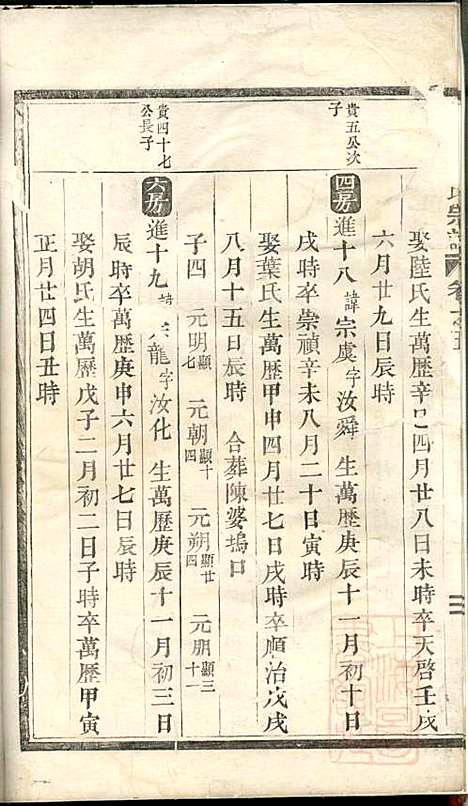 氏宗譜 卷之五
三
娶陸氏生萬歷辛巳四月廿八日未時卒天啓壬戌
六月廿九日辰時
貴五公次子
四房 進十八 諱宗虞字汝舜 生萬歷庚辰十一月初十日
戌時卒崇禎辛未八月二十日寅時
娶葉氏生萬歷甲申四月廿七日戌時卒順治戊戌
八月十五日辰時 合葬陳婆塢口
子四 元明顯七 元朝顯十四 元朔顯廿四 元朋顯三十一
貴四十七公長子
六房 進十九 諱宗龍字汝化 生萬歷庚辰十一月初三日
辰時卒萬歷庚申六月廿七日辰時
娶胡氏生萬歷戊子二月初二日子時卒萬歷甲寅
正月廿四日丑時